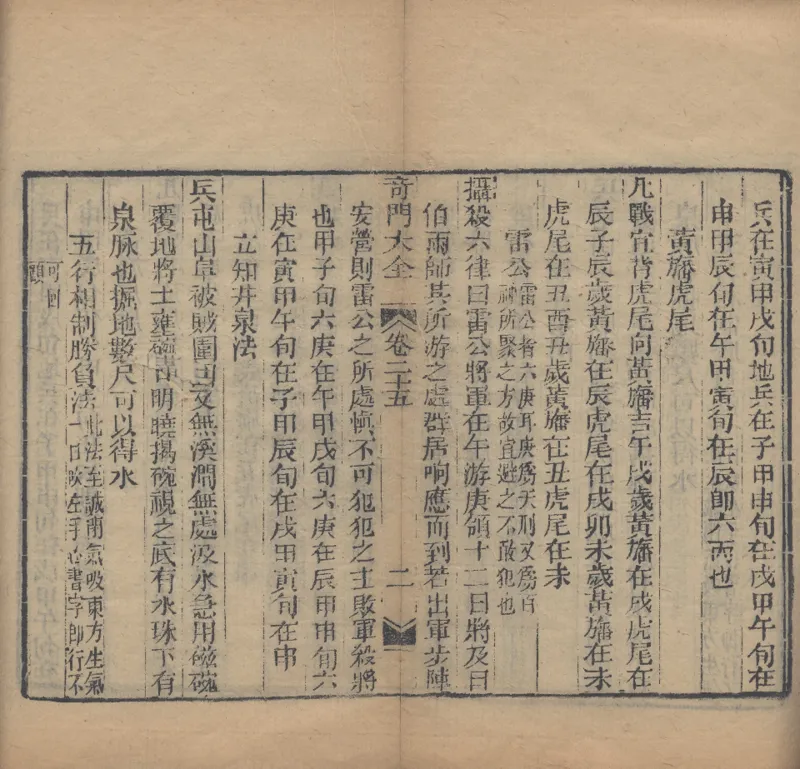 兵在寅甲戌旬地兵在子甲申旬在戌甲午旬在
申甲辰旬在午甲寅旬在辰即六丙也
黃旛虎尾
凡戰宜背虎尾向黃旛吉午戌歲黃旛在戌虎尾在
辰子辰歲黃旛在辰虎尾在戌卯未歲黃旛在未
虎尾在丑酉丑歲黃旛在丑虎尾在未
雷公
雷公者六庚耳庚爲天刑又爲百
神所聚之方故宜避之不敢犯也
攝殺六律曰雷公將軍在午游庚領十二日將及日
伯雨師其所游之處群居响應而到若出軍步陣
奇門大全 卷二十五 二
安營則雷公之所處愼不可犯犯之士敗軍殺將
也甲子旬六庚在午甲戌旬六庚在辰甲申旬六
庚在寅甲午旬在子甲辰旬在戌甲寅旬在申
立知井泉法
兵屯山阜被賊圍困又無溪澗無處汲水急用磁碗
覆地將土壅 明曉揭碗視之底有水珠下有
泉脉也掘地數尺可以得水
五行相制勝負法
此法至誠閉氣吸東方生氣
一口 左手心書字即行不
可回
顧